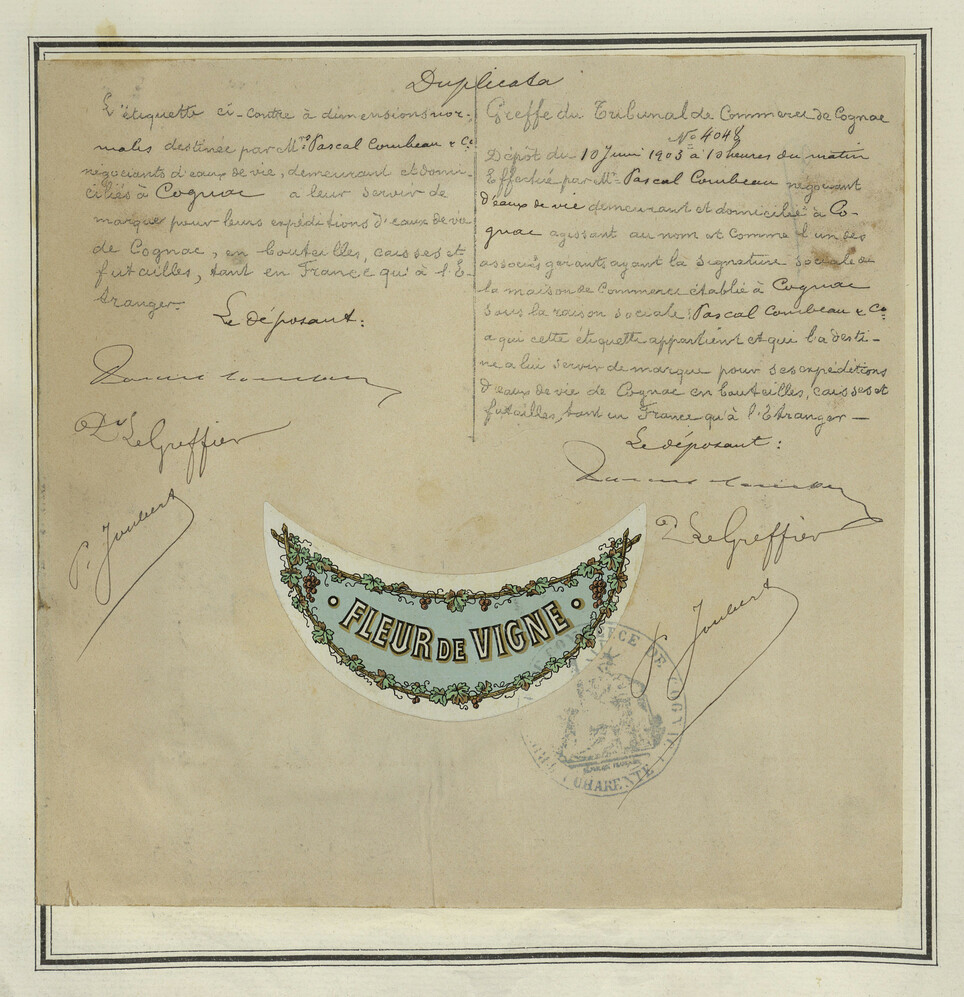 Duplicata
L'étiquette ci-contre à dimensions nor-
males destinée par Mrs Pascal Combeau & Cie
négociants d'eaux de vie, demeurant et domi-
ciliés à Cognac a leur servir de
marque pour leurs expéditions d'eaux de vie
de Cognac, en bouteilles, caisses et
futailles, tant en France qu'à l'E-
tranger.
Le déposant:
Le Greffier
P. Joubert
Greffe du Tribunal de Commerce de Cognac
No 4048
Dépôt du 10 Juin 1903 à 10 heures du matin
Effectué par Mr Pascal Combeau négociant
d'eaux de vie demeurant et domicilié à Co-
gnac agissant au nom et comme l'un des
associés gérants ayant la signature sociale de
la maison de Commerce établie à Cognac
sous la raison sociale: Pascal Combeau & Cie
a qui cette étiquette appartient et qui l'a desti-
né a lui servir de marque pour ses expéditions
d'eaux de vie de Cognac en bouteilles, caisses et
futailles, tant en France qu'à l'Etranger —
Le déposant:
Le Greffier
P. Joubert
FLEUR DE VIGNE
COMMERCE DE COGNAC
CHARENTE